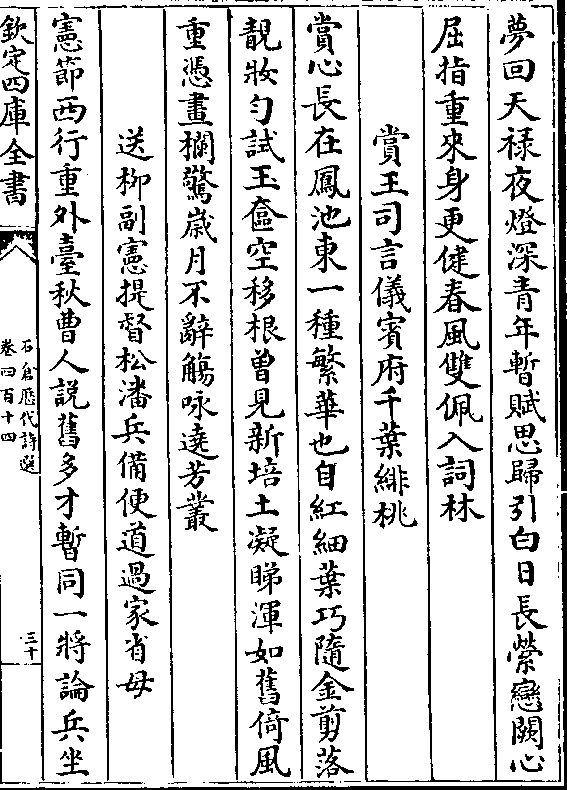 夢回天禄夜燈深青年暫賦思歸引白日長縈戀闕心
屈指重來身更健春風雙佩入詞林
賞王司言儀賓府千葉緋桃
賞心長在鳳池東一種繁華也自紅細葉巧隨金剪落
靚妝勻試玉奩空移根曽見新培土凝睇渾如舊倚風
重憑畫欄驚嵗月不辭觴咏遶芳叢
送柳副憲提督松潘兵備便道過家省母
憲節西行重外臺秋曹人説舊多才暫同一將論兵坐
欽定四庫全書
石倉歴代詩選
卷四百十四
三十